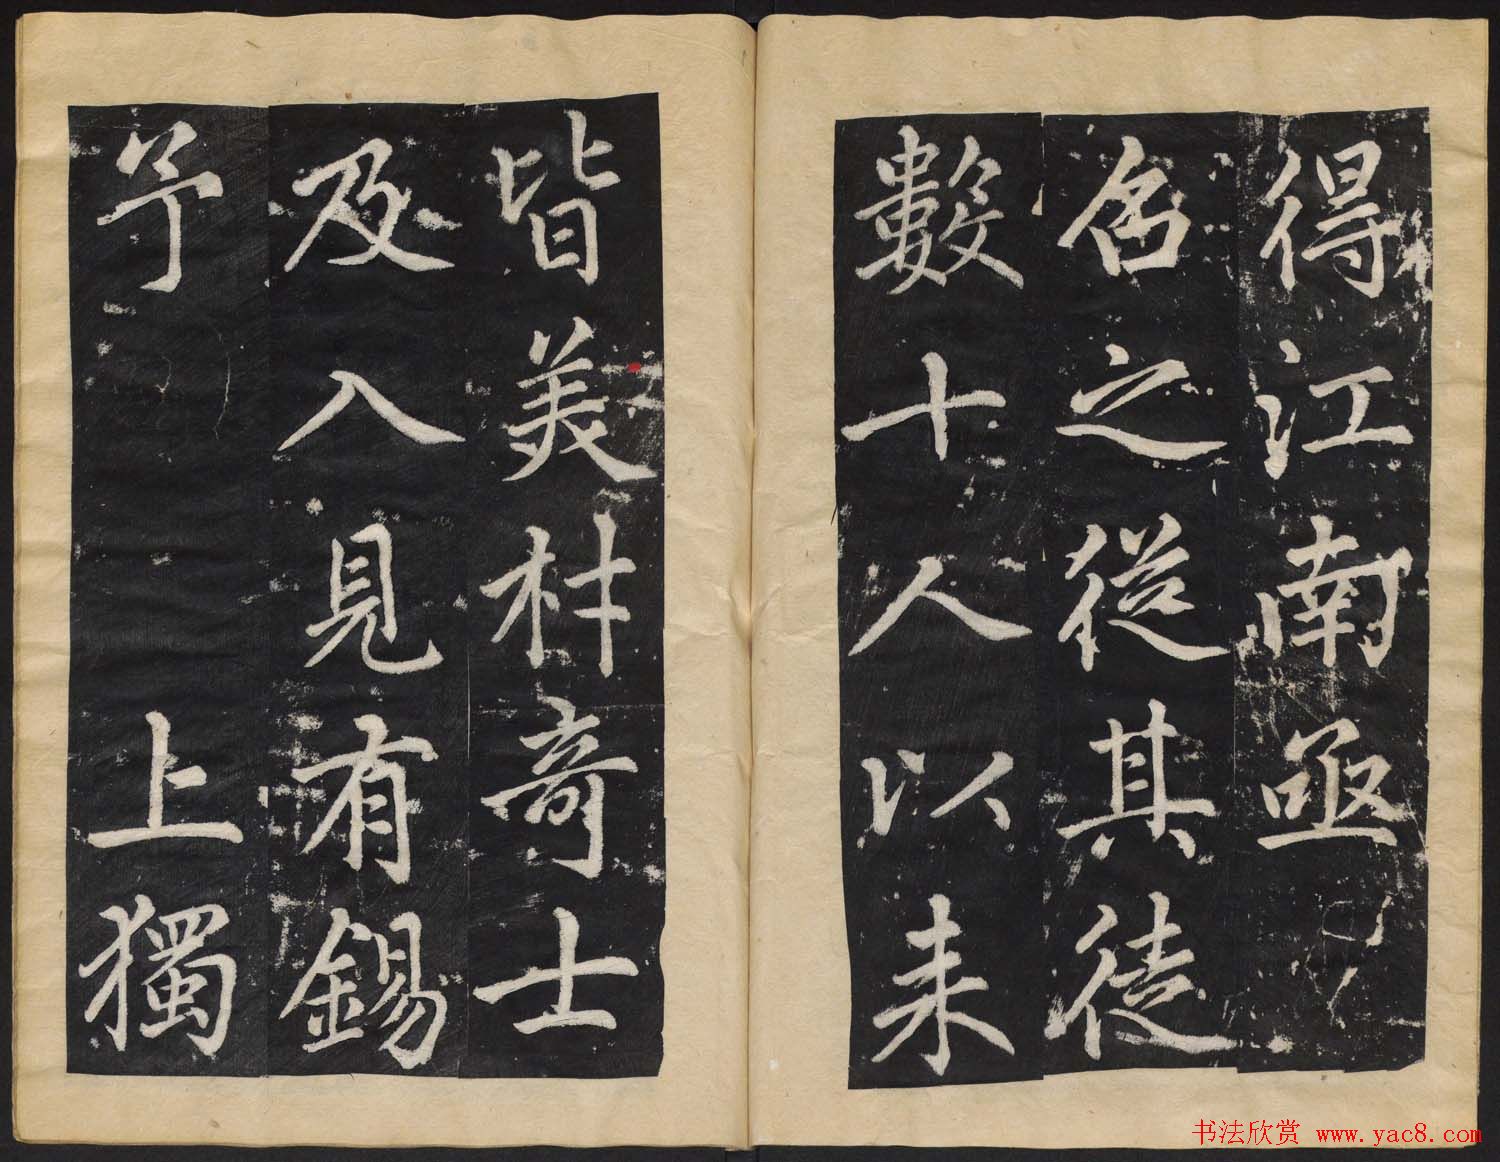 得江南亟
召之從其徒
數十人以来
皆美材奇士
及入見有錫
予　上獨
书法欣赏 www.yac8.com